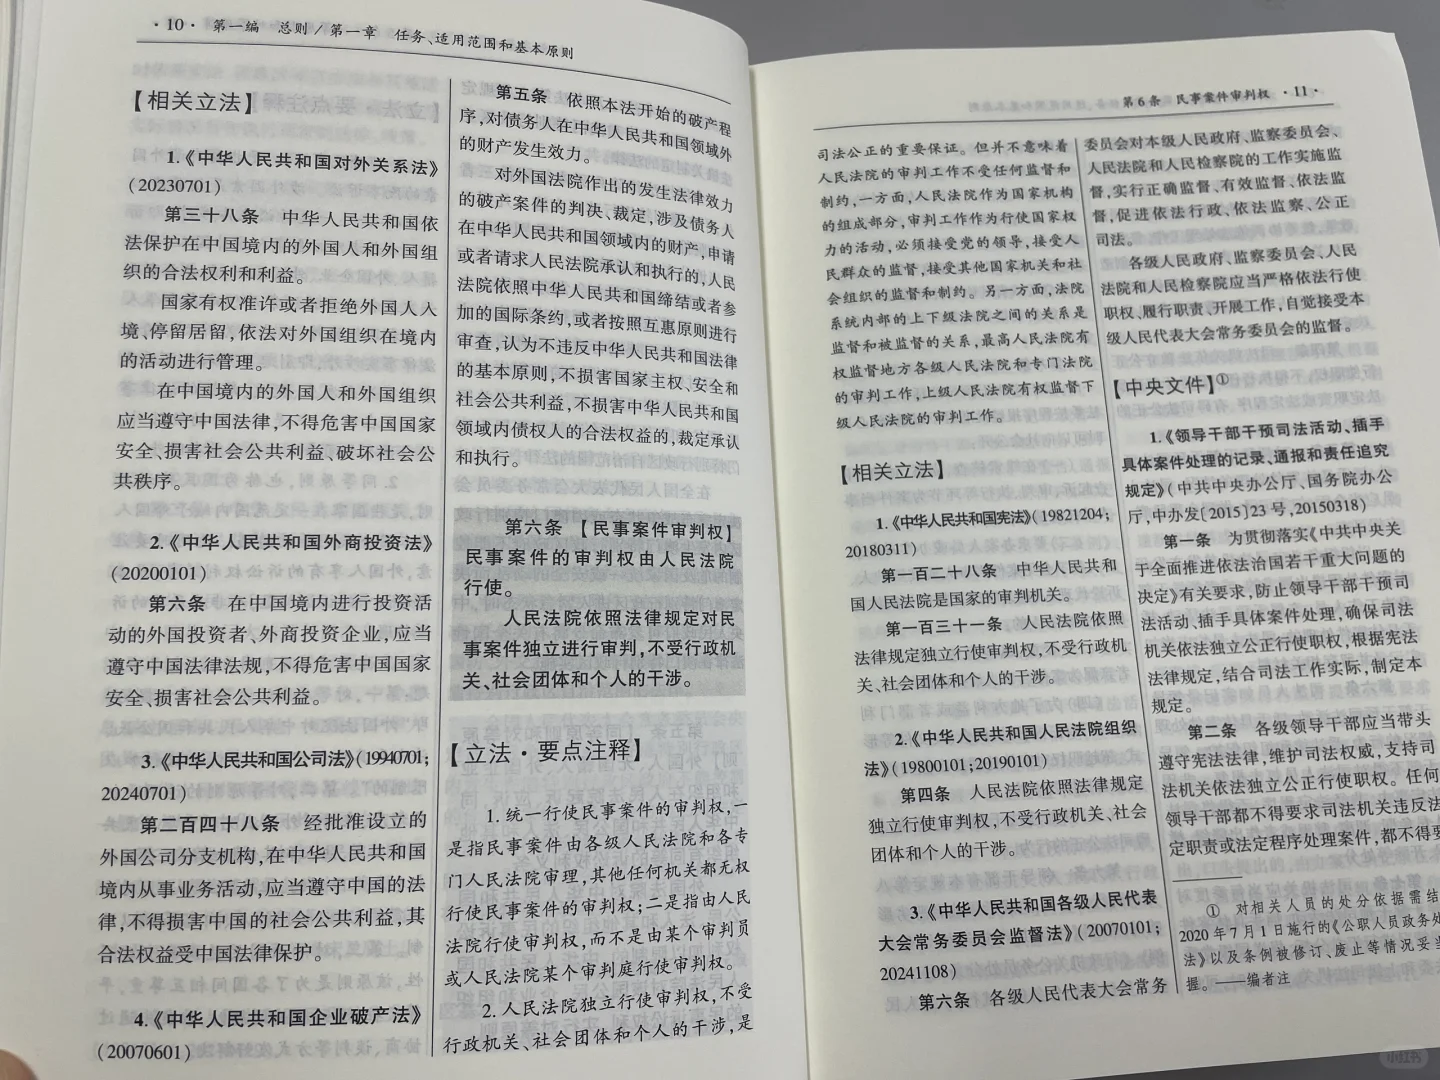 ·10· 第一编 总则/第一章 任务、适用范围和基本原则
【相关立法】
1.《中华人民共和国对外关系法》
(20230701)
第三十八条 中华人民共和国依
法保护在中国境内的外国人和外国组
织的合法权利和利益。
国家有权准许或者拒绝外国人入
境、停留居留,依法对外国组织在境内
的活动进行管理。
在中国境内的外国人和外国组织
应当遵守中国法律,不得危害中国国家
安全、损害社会公共利益、破坏社会公
共秩序。
2.《中华人民共和国外商投资法》
(20200101)
第六条 在中国境内进行投资活
动的外国投资者、外商投资企业,应当
遵守中国法律法规,不得危害中国国家
安全、损害社会公共利益。
3.《中华人民共和国公司法》(19940701;
20240701)
第二百四十八条 经批准设立的
外国公司分支机构,在中华人民共和国
境内从事业务活动,应当遵守中国的法
律,不得损害中国的社会公共利益,其
合法权益受中国法律保护。
4.《中华人民共和国企业破产法》
(20070601)
第五条 依照本法开始的破产程
序,对债务人在中华人民共和国领域外
的财产发生效力。
对外国法院作出的发生法律效力
的破产案件的判决、裁定,涉及债务人
在中华人民共和国领域内的财产,申请
或者请求人民法院承认和执行的,人民
法院依照中华人民共和国缔结或者参
加的国际条约,或者按照互惠原则进行
审查,认为不违反中华人民共和国法律
的基本原则,不损害国家主权、安全和
社会公共利益,不损害中华人民共和国
领域内债权人的合法权益的,裁定承认
和执行。
第六条 【民事案件审判权】
民事案件的审判权由人民法院
行使。
人民法院依照法律规定对民
事案件独立进行审判,不受行政机
关、社会团体和个人的干涉。
【立法·要点注释】
1. 统一行使民事案件的审判权,一
是指民事案件由各级人民法院和各专
门人民法院审理,其他任何机关都无权
行使民事案件的审判权;二是指由人民
法院行使审判权,而不是由某个审判员
或人民法院某个审判庭行使审判权。
2. 人民法院独立行使审判权,不受
行政机关、社会团体和个人的干涉,是
第6条 民事案件审判权 ·11·
司法公正的重要保证。但并不意味着
人民法院的审判工作不受任何监督和
制约,一方面,人民法院作为国家机构
的组成部分,审判工作作为行使国家权
力的活动,必须接受党的领导,接受人
民群众的监督,接受其他国家机关和社
会组织的监督和制约。另一方面,法院
系统内部的上下级法院之间的关系是
监督和被监督的关系,最高人民法院有
权监督地方各级人民法院和专门法院
的审判工作,上级人民法院有权监督下
级人民法院的审判工作。
【相关立法】
1.《中华人民共和国宪法》(19821204;
20180311)
第一百二十八条 中华人民共和
国人民法院是国家的审判机关。
第一百三十一条 人民法院依照
法律规定独立行使审判权,不受行政机
关、社会团体和个人的干涉。
2.《中华人民共和国人民法院组织
法》(19800101;20190101)
第四条 人民法院依照法律规定
独立行使审判权,不受行政机关、社会
团体和个人的干涉。
3.《中华人民共和国各级人民代表
大会常务委员会监督法》(20070101;
20241108)
第六条 各级人民代表大会常务
委员会对本级人民政府、监察委员会、
人民法院和人民检察院的工作实施监
督,实行正确监督、有效监督、依法监
督,促进依法行政、依法监察、公正
司法。
各级人民政府、监察委员会、人民
法院和人民检察院应当严格依法行使
职权、履行职责、开展工作,自觉接受本
级人民代表大会常务委员会的监督。
【中央文件】①
1.《领导干部干预司法活动、插手
具体案件处理的记录、通报和责任追究
规定》(中共中央办公厅、国务院办公
厅,中办发[2015]23号,20150318)
第一条 为贯彻落实《中共中央关
于全面推进依法治国若干重大问题的
决定》有关要求,防止领导干部干预司
法活动、插手具体案件处理,确保司法
机关依法独立公正行使职权,根据宪法
法律规定,结合司法工作实际,制定本
规定。
第二条 各级领导干部应当带头
遵守宪法法律,维护司法权威,支持司
法机关依法独立公正行使职权。任何
领导干部都不得要求司法机关违反法
定职责或法定程序处理案件,都不得要
① 对相关人员的处分依据需结
2020年7月1日施行的《公职人员政务处
法》以及条例被修订、废止等情况妥当
握。——编者注
小红书